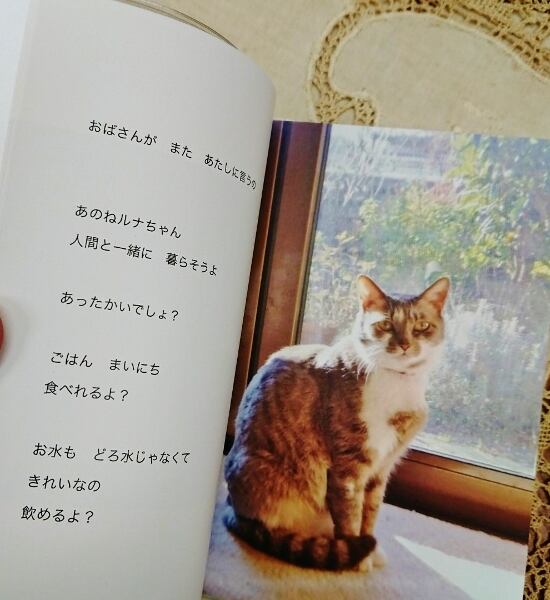 おばさんが　また　あたしに言うの
あのねルナちゃん
人間と一緒に　暮らそうよ
あったかいでしょ？
ごはん　まいにち
食べれるよ？
お水も　どろ水じゃなくて
きれいなの
飲めるよ？